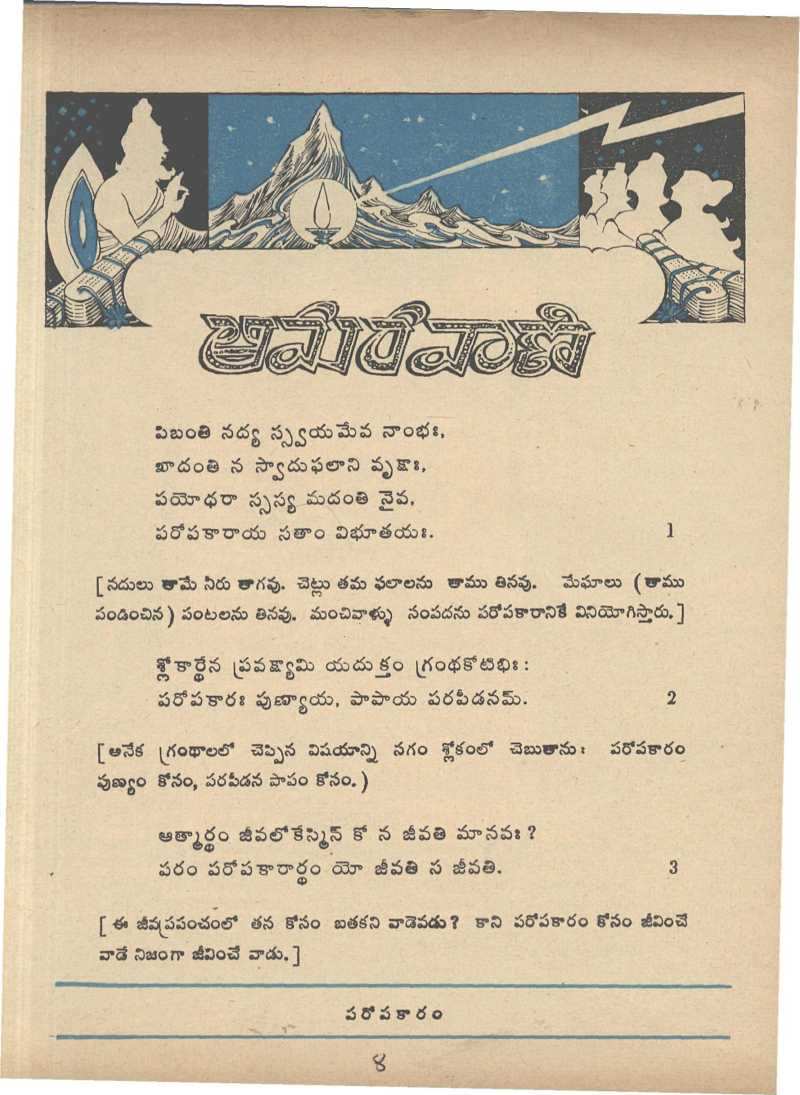 అమరవాణి
పిబంతి నద్య స్స్వయమేవ నాంభః,
ఖాదంతి న స్వాదుఫలాని వృక్షాః,
పయోధరా స్సస్య మదంతి నైవ,
పరోపకారాయ సతాం విభూతయః. 1
[నదులు తామే నీరు తాగవు. చెట్లు తమ ఫలాలను తాము తినవు. మేఘాలు (తాము
పండించిన) పంటలను తినవు. మంచివాళ్ళు సంపదను పరోపకారానికే వినియోగిస్తారు.]
శ్లోకార్థేన ప్రవక్ష్యామి యదుక్తం గ్రంథకోటిభిః :
పరోపకారః పుణ్యాయ, పాపాయ పరపీడనమ్. 2
[అనేక గ్రంథాలలో చెప్పిన విషయాన్ని సగం శ్లోకంలో చెబుతాను: పరోపకారం
పుణ్యం కోసం, పరపీడన పాపం కోసం.)
ఆత్మార్థం జీవలోకేస్మిన్ కో న జీవతి మానవః ?
పరం పరోపకారార్థం యో జీవతి స జీవతి. 3
[ఈ జీవప్రపంచంలో తన కోసం బతకని వాడెవడు? కాని పరోపకారం కోసం జీవించే
వాడే నిజంగా జీవించే వాడు.]
పరోపకారం